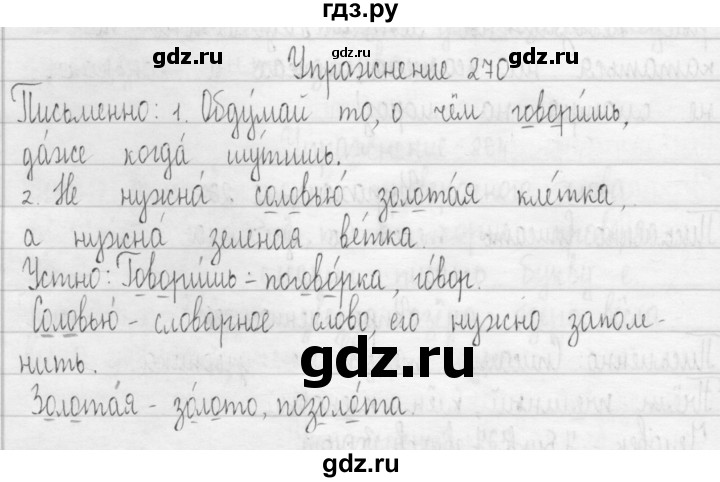 гдз.ру
gdz.ru gdz.ru gdz.ru
Упражнение 270
Письменно: 1. Обду́май то, о чём говори́шь,
да́же когда́ шу́тишь.
gdz.ru gdz.ru
2. Не нужна́ соловью́ золота́я кле́тка,
а нужна́ зелёная ве́тка.
gdz.ru gdz.ru gdz.ru
Устно: Говори́шь - погово́рка, го́вор.
Соловью́ - словарное слово, его нужно запом-
gdz.ru gdz.ru
нить.
Золота́я - зо́лото, позоло́та
gdz.ru gdz.ru gdz.ru